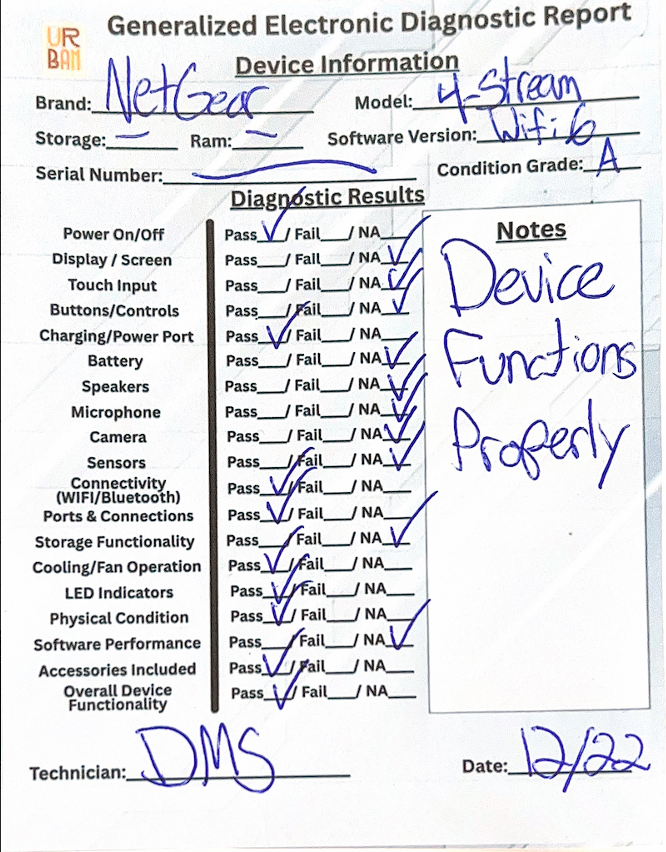 UR
BAM
Generalized Electronic Diagnostic Report
Device Information
Brand: NetGear Model: 4-Stream
Storage: — Ram: — Software Version: Wifi 6
Serial Number: — Condition Grade: A
Diagnostic Results
Power On/Off Pass ✓ / Fail___ / NA___
Display / Screen Pass___ / Fail___ / NA ✓
Touch Input Pass___ / Fail___ / NA ✓
Buttons/Controls Pass___ / Fail___ / NA ✓
Charging/Power Port Pass ✓ / Fail___ / NA___
Battery Pass___ / Fail___ / NA ✓
Speakers Pass___ / Fail___ / NA ✓
Microphone Pass___ / Fail___ / NA ✓
Camera Pass___ / Fail___ / NA ✓
Sensors Pass___ / Fail___ / NA ✓
Connectivity
(WIFI/Bluetooth) Pass ✓ / Fail___ / NA___
Ports & Connections Pass ✓ / Fail___ / NA___
Storage Functionality Pass___ / Fail___ / NA ✓
Cooling/Fan Operation Pass ✓ / Fail___ / NA___
LED Indicators Pass ✓ / Fail___ / NA___
Physical Condition Pass ✓ / Fail___ / NA___
Software Performance Pass___ / Fail___ / NA ✓
Accessories Included Pass ✓ / Fail___ / NA___
Overall Device
Functionality Pass ✓ / Fail___ / NA___
Notes
Device
Functions
Properly
Technician: DMS Date: 12/22